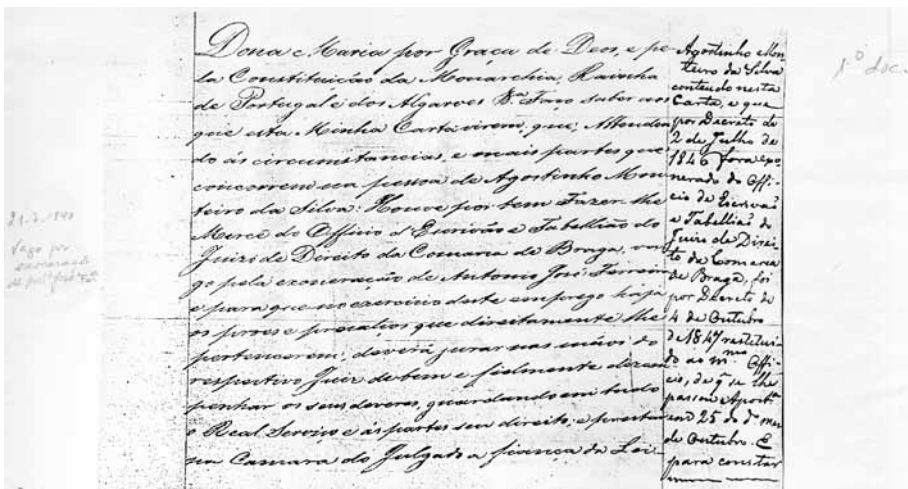 Dona Maria por Graça de Deos, e pe
la Constituição da Monarchia, Rainha
de Portugal e dos Algarves &.ª Faço saber aos
que esta Minha Carta virem, que, Attenden
do ás circumstancias, e mais partes que
concorrem na pessoa de Agostinho Mon
teiro da Silva: Houve por bem Fazer-lhe
Mercê do Officio d'Escrivão e Tabellião do
Juizo de Direito da Comarca de Braga, va
go pela exoneração de Antonio José Ferreira
e para que no exercicio deste emprego haja
os prós e precalços que direitamente lhe
pertencerem, deverá jurar nas mãos do
respectivo Juiz de bem e fielmente desem
penhar os seus deveres, guardando em tudo
o Real Serviço e ás partes seu direito, e prestar
na Camara do Julgado a fiança da Lei
Agostinho Mon
teiro da Silva
conteudo nesta
Carta, e que
por Decreto de
2 de Julho de
1846 fora exo
nerado do Offi
cio de Escrivaõ
e Tabelliaõ do
Juizo de Direi
to da Comarca
de Braga, foi
por Decreto de
4 de Outubro
de 1847 restitui
do ao m.mo Offi
cio, de q se lhe
passou Apost.
em 25 do d.º mez
de Outubro. E
para constar
1º doc.
Vago por